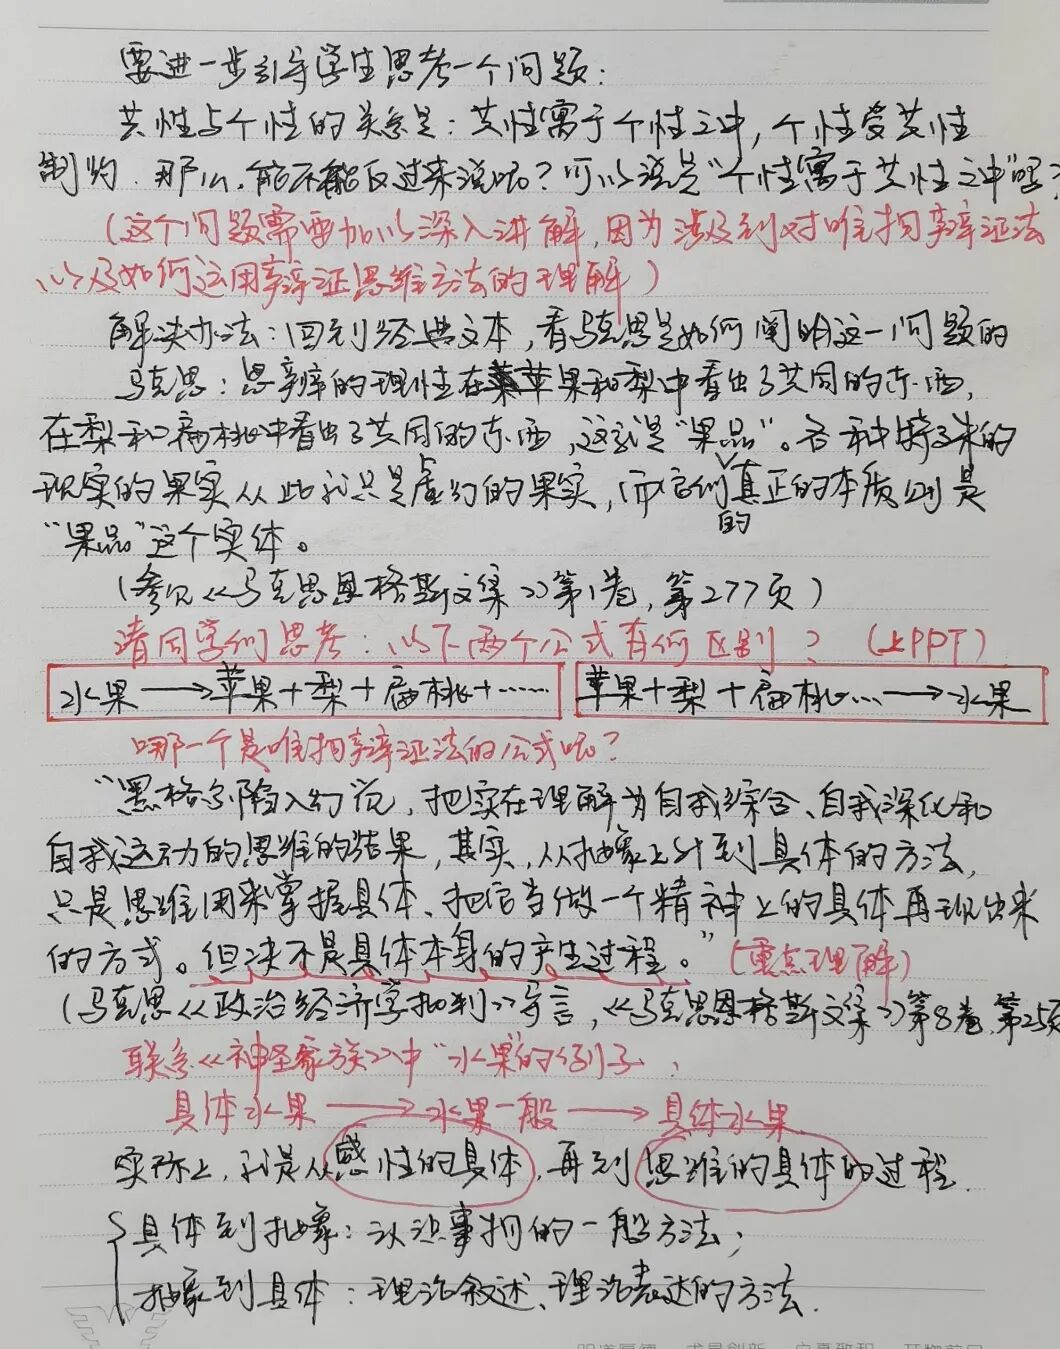 要进一步引导学生思考一个问题:
共性与个性的关系是:共性寓于个性之中,个性受共性
制约.那么,能不能反过来说呢?可以说是"个性寓于共性之中"吗?
(这个问题需要加以深入讲解,因为涉及到对唯物辩证法
以及如何运用辩证思维方法的理解)
解决办法:回到经典文本,看马克思是如何阐明这一问题的
马克思:思辨的理性在苹果和梨中看出了共同的东西,
在梨和扁桃中看出了共同的东西,这就是"果品"。各种特殊的
现实的果实从此就只是虚幻的果实,而它们的真正的本质则是
"果品"这个实体。
(参见《马克思恩格斯文集》第1卷,第277页)
请同学们思考:以下两个公式有何区别?(上PPT)
水果→苹果+梨+扁桃+…… 苹果+梨+扁桃…→水果
哪一个是唯物辩证法的公式呢?
"黑格尔陷入幻觉,把实在理解为自我综合、自我深化和
自我运动的思维的结果,其实,从抽象上升到具体的方法,
只是思维用来掌握具体、把它当做一个精神上的具体再现出来
的方式。但决不是具体本身的产生过程。"(重点理解)
(马克思《政治经济学批判》导言,《马克思恩格斯文集》第8卷,第25页
联系《神圣家族》中"水果"的例子,
具体水果→水果一般→具体水果
实际上,就是从感性的具体,再到思维的具体的过程.
具体到抽象:认识事物的一般方法;
抽象到具体:理论叙述、理论表达的方法.